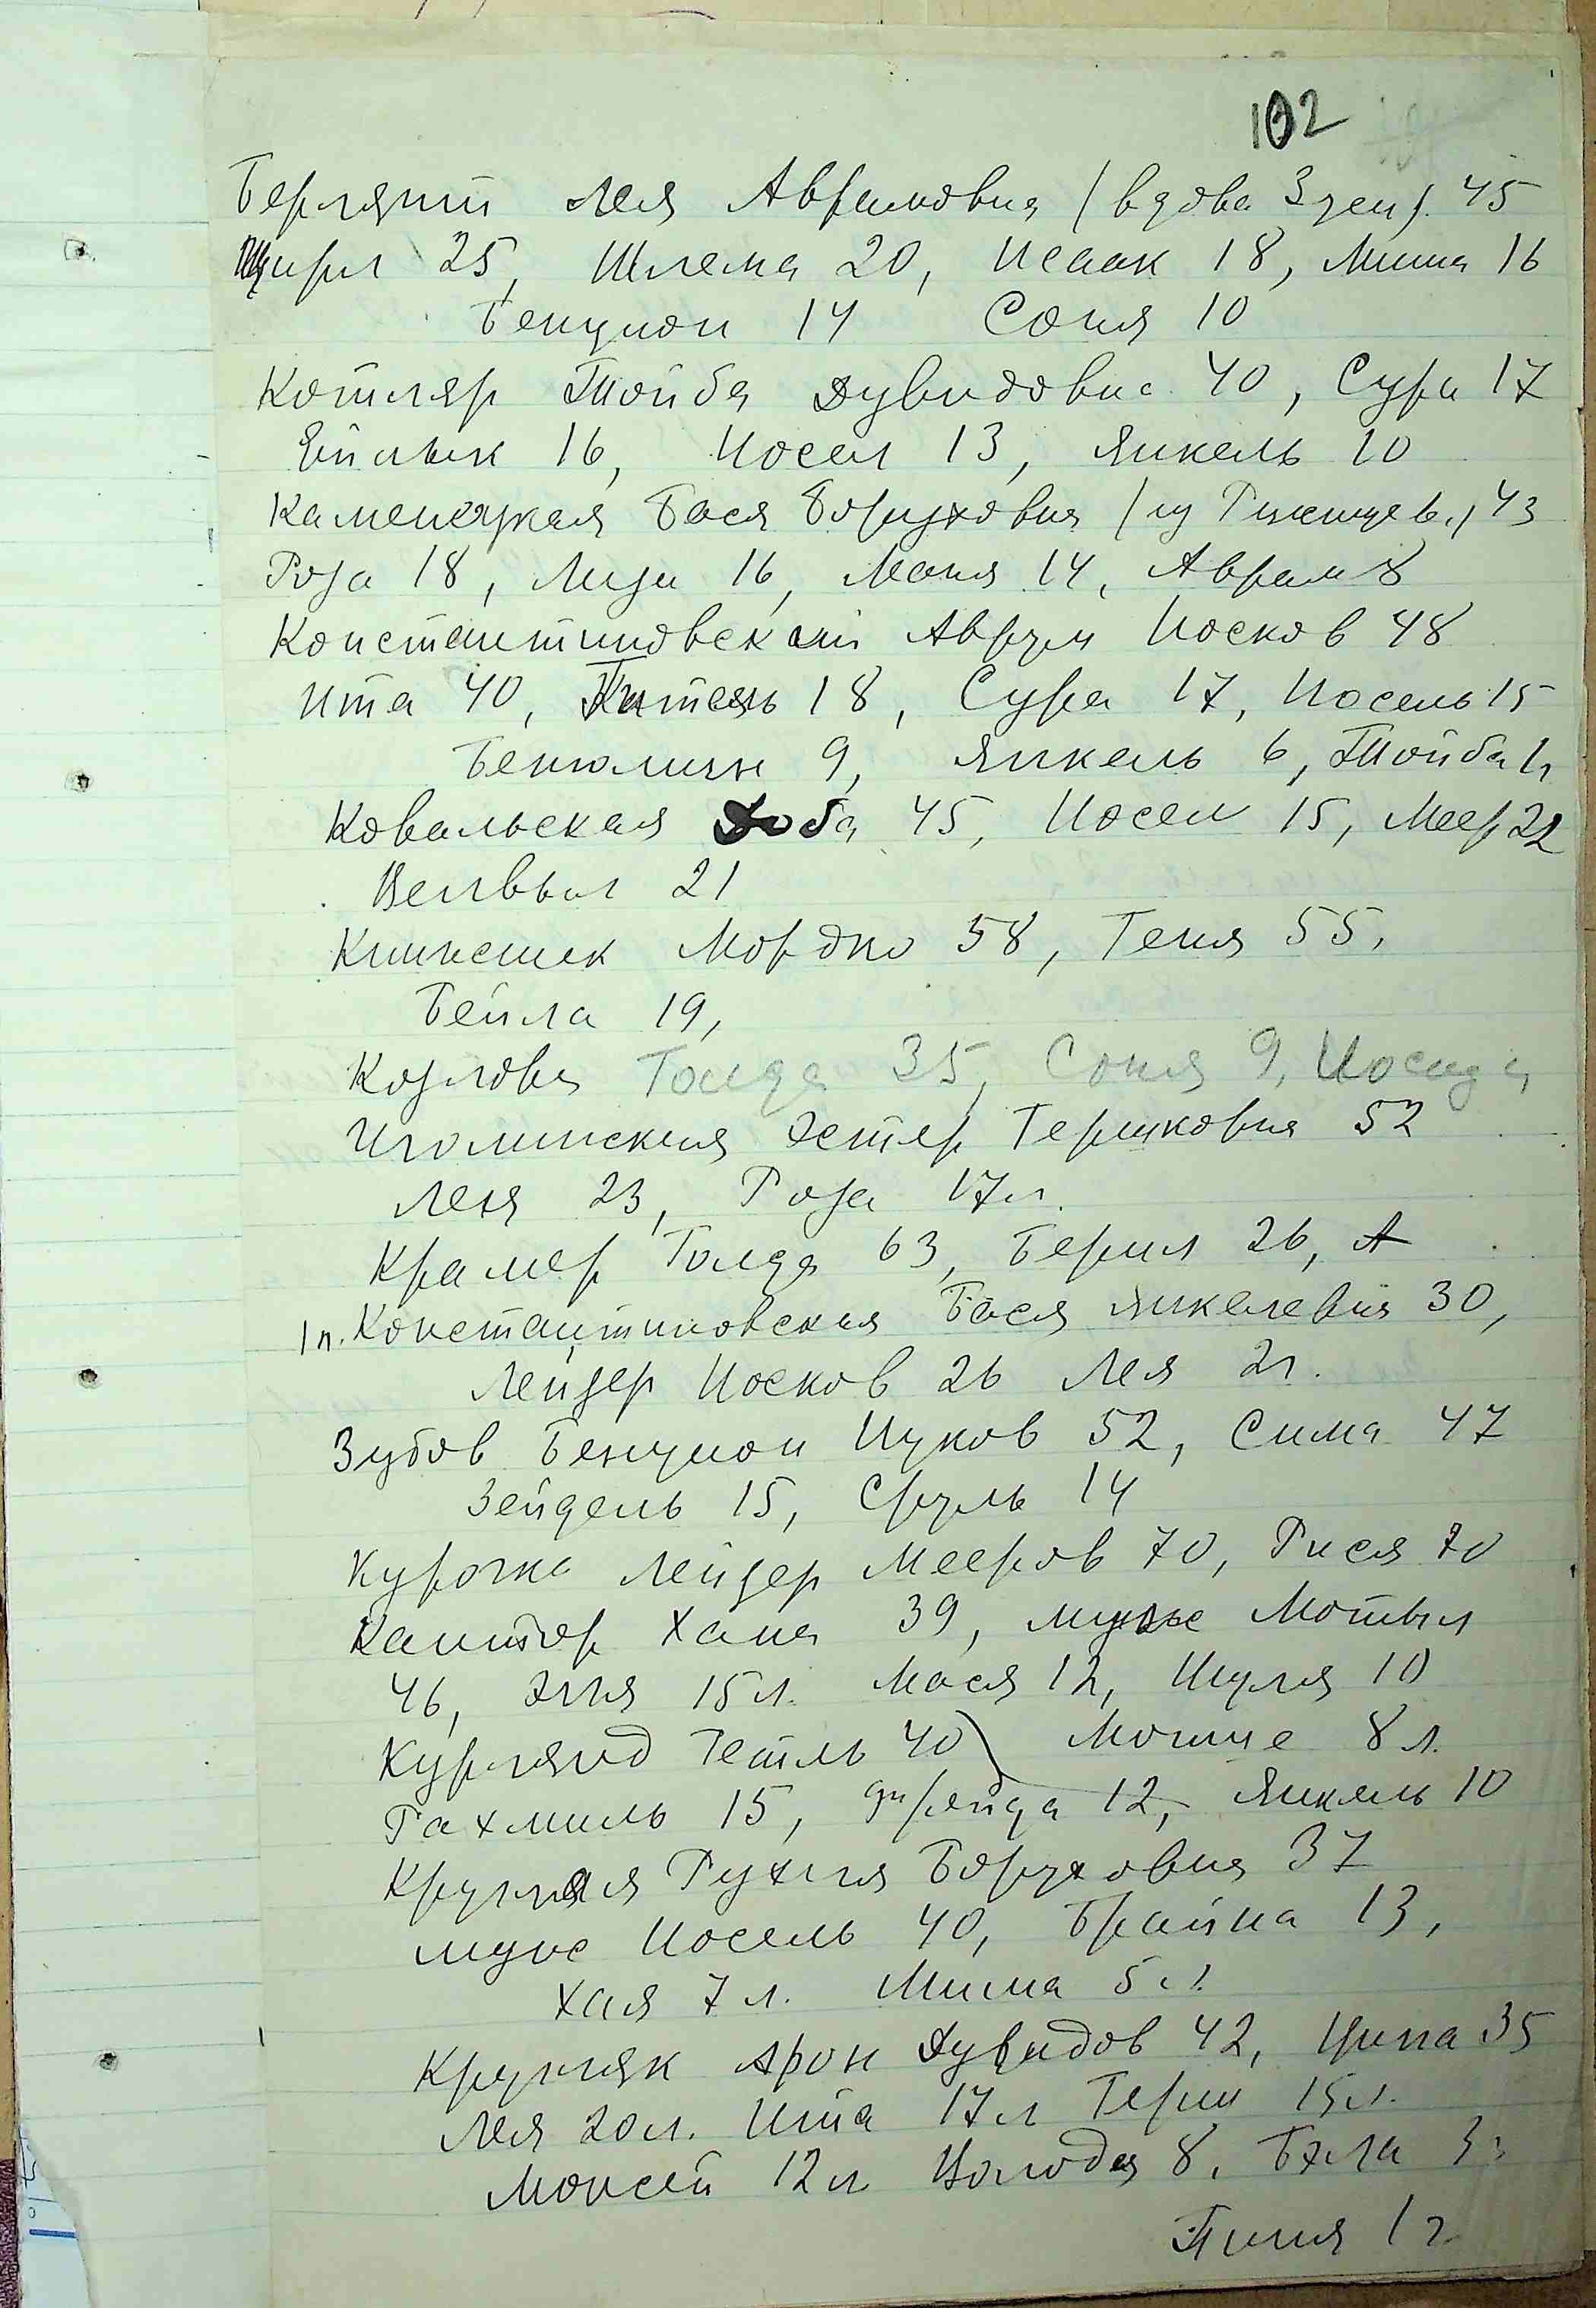 102
Берлянт Лея Аврамовна (вдова Зусм). 45
Цирл 25, Шлема 20, Исаак 18, Миша 16
Бенцион 14 Соня 10
Котляр Тойба Дувидовна 40, Сура 17
16, Иосел 13, Янкель 10
Каменецкая Бася Боруховна (из 43
Роза 18, Лиза 16, Маня 14, Аврам 8
Константиновский Аврум Иосков 48
Ита 40, 18, Сура 17, Иосель 15
Бенюмин 9, Янкель 6, Тойба
Ковальская Доба 45, Иосел 15, Меер 22
Велвыл 21
Мордко 58, Геня 55,
Бейла 19,
Козлова Голда 35, Соня 9,
Иголинская Эстер Гершковна 52
Леня 23, Роза 17 л.
Крамер Голда 63, Берил 26, А
1 п. Константиновская Бася Янкелевна 30,
Лейзер Иосков 26 Лея 2 г.
Зубов Бенцион Ицков 52, Сима 47
Зейдель 15, Сруль 14
Курочка Лейзер Мееров 70, Рися 70
Кантор Хана 39, муж Мотыл
46, Эля 15 л. Мася 12, Шуля 10
Курлянд Гетль 40 Мошце 8 л.
Рахмиль 15, Фрейда 12, Янкель 10
Круглая Рухля Боруховна 37
муж Иосель 40, Брайна 13,
Хая 7 л. Миша 5 л.
Кругляк Арон Дувидов 42, Ципа 35
Лея 20 л. Ита 17 л Герш 15 л.
Моисей 12 л Володя 8, Бэла 3 г
Пиня 1 г.